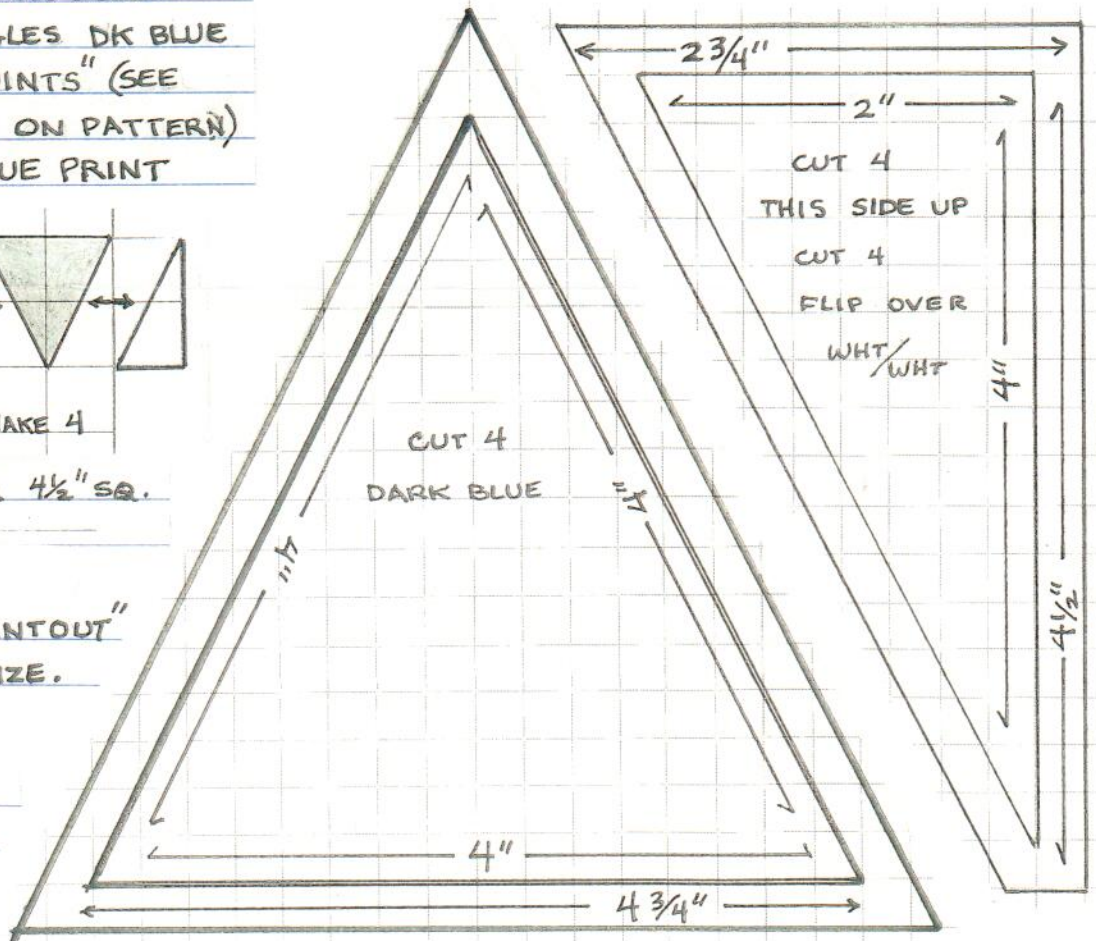 GLES DK BLUE
INTS" (SEE
ON PATTERN)
UE PRINT
AKE 4
4½" SQ.
NTOUT"
IZE.
4"
4"
CUT 4
DARK BLUE
4"
4 3/4"
2 3/4"
2"
CUT 4
THIS SIDE UP
CUT 4
FLIP OVER
WHT/WHT
4"
4½"